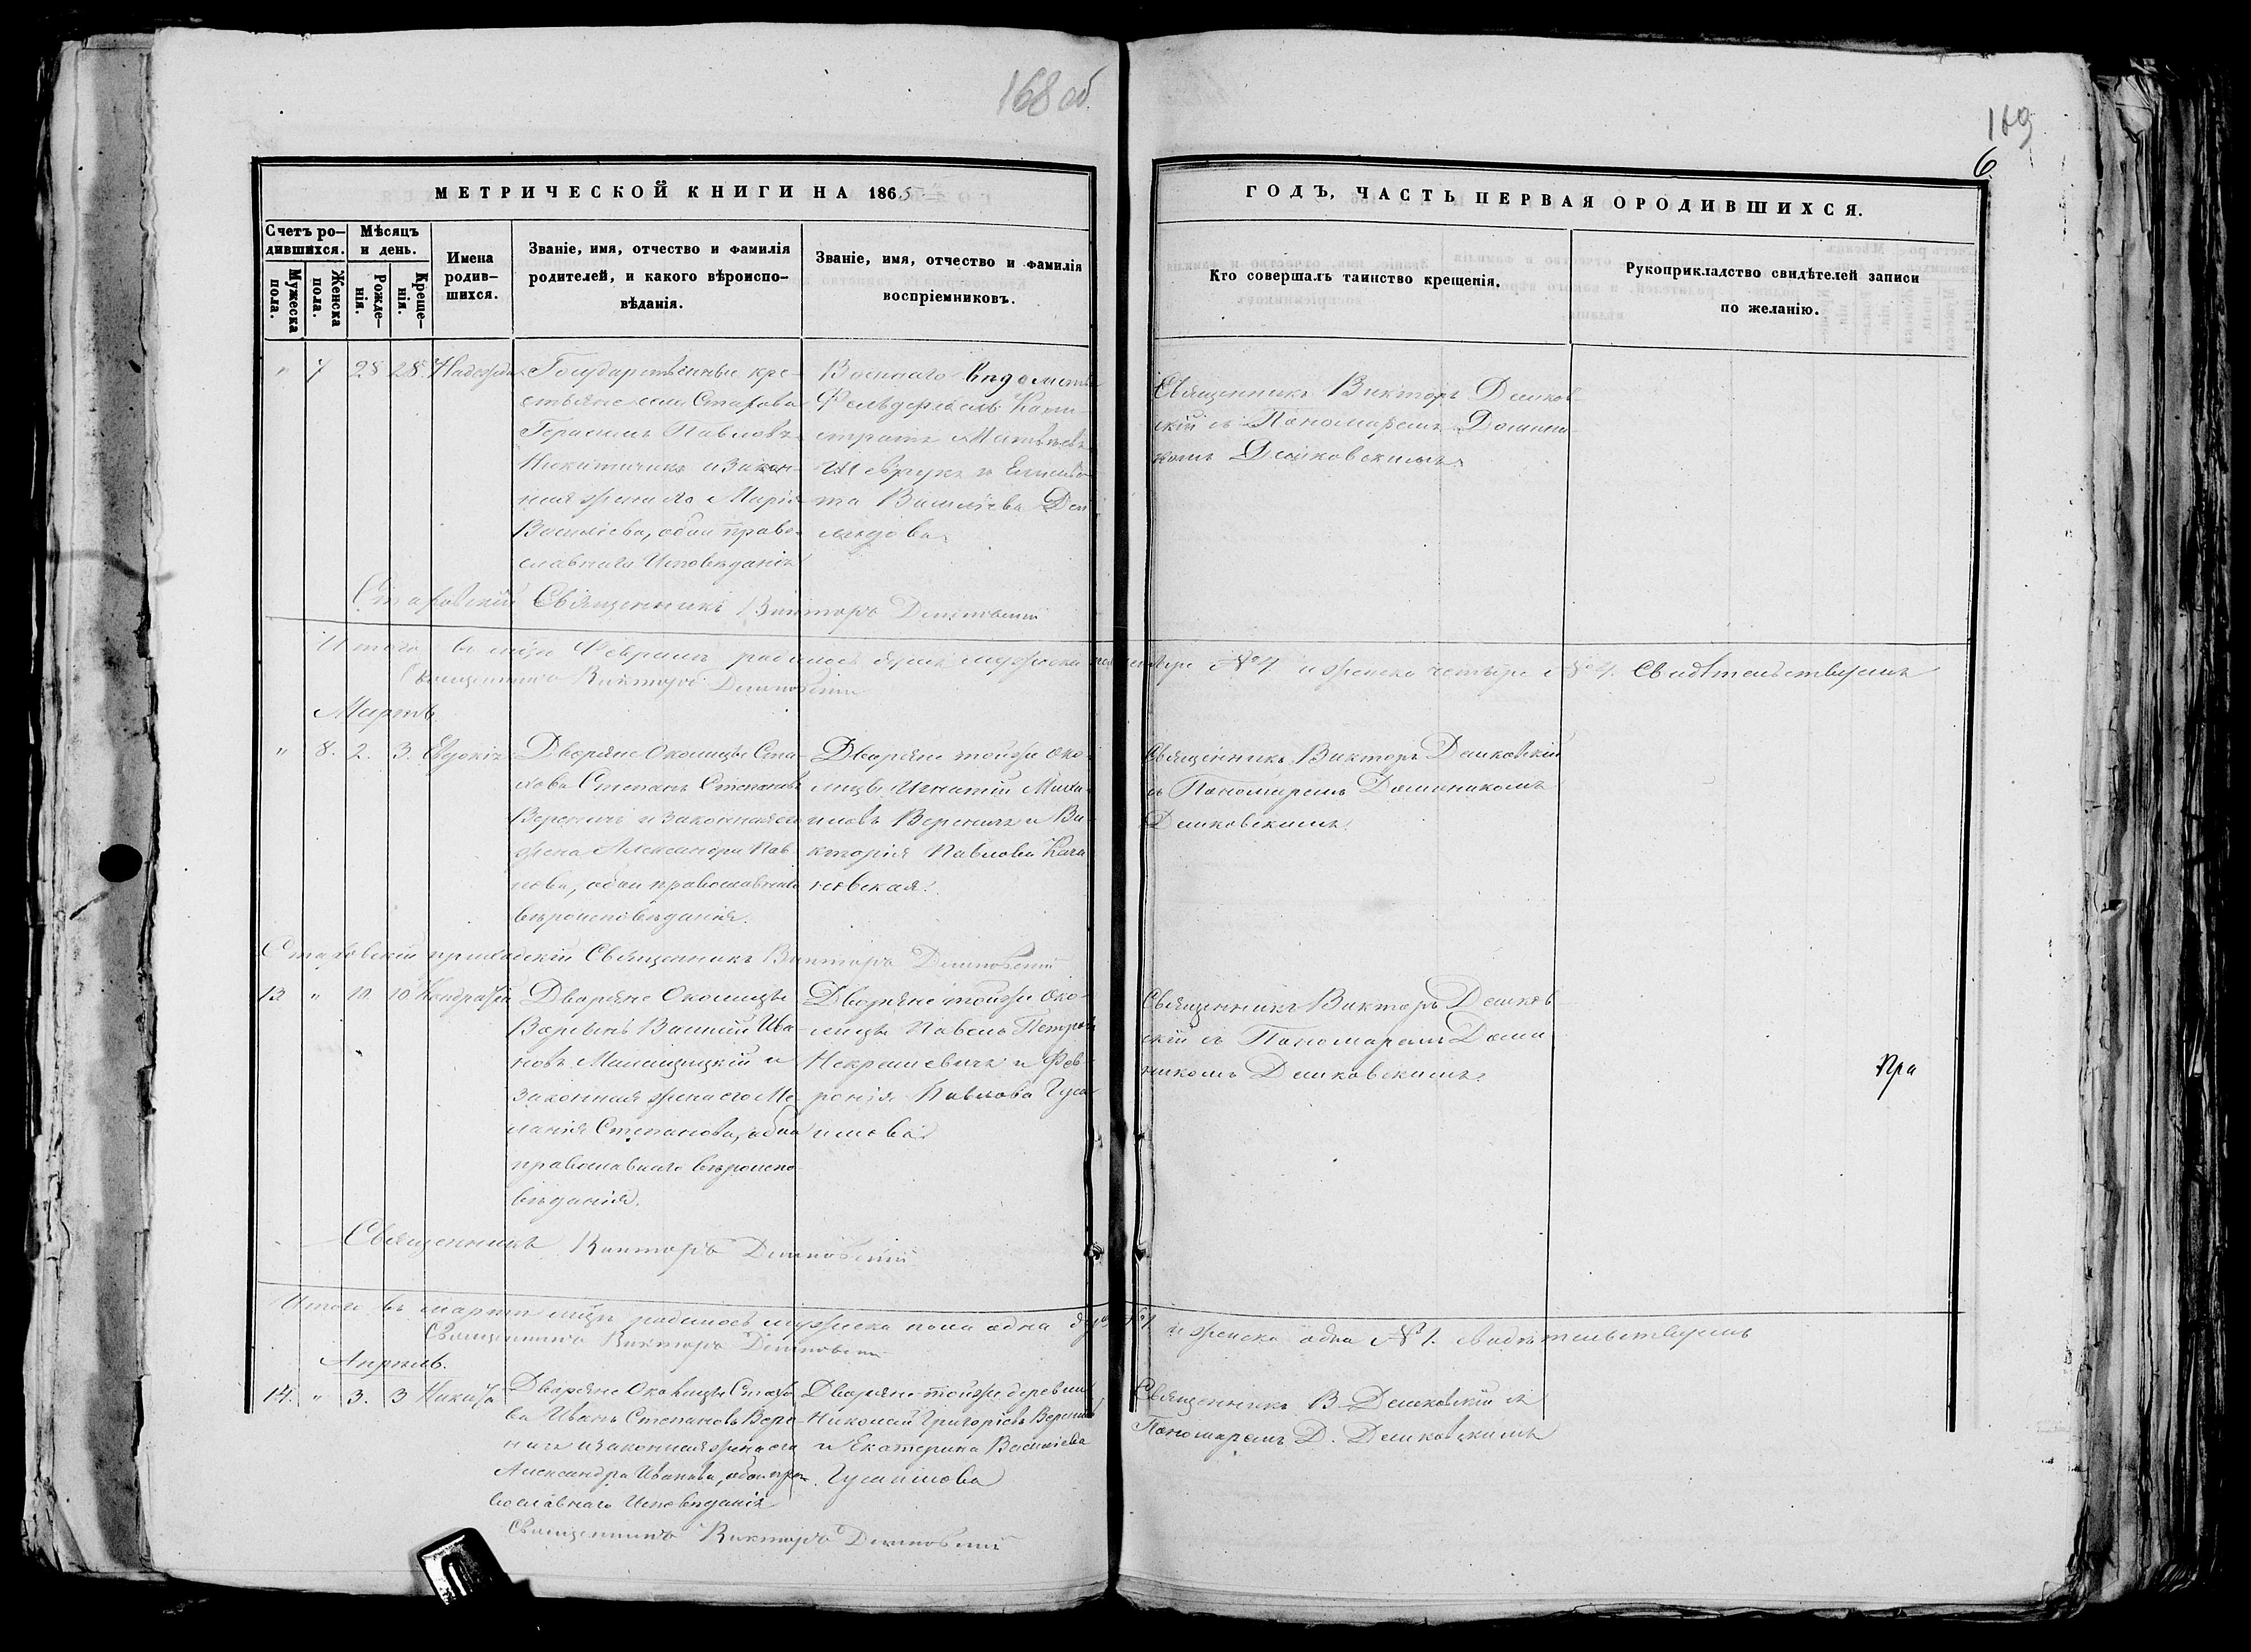 168 об
169
6
МЕТРИЧЕСКОЙ КНИГИ НА 1865
ГОДЪ, ЧАСТЬ ПЕРВАЯ ОРОДИВШИХСЯ.
Счетъ ро-
дившихся.
Мужеска
пола.
Женска
пола.
Мѣсяцъ
и день.
Рожде-
нія.
Креще-
нія.
Имена
родив-
шихся.
Званіе, имя, отчество и фамилія
родителей, и какого вѣроиспо-
вѣданія.
Званіе, имя, отчество и фамилія
воспріемниковъ.
Кто совершалъ таинство крещенія.
Рукоприкладство свидѣтелей записи
по желанію.
" 7 28 28 Надежда
Государственные кре-
стьяне села Стахова
Герасимъ Павловъ
Никитичикъ и закон-
ная жена его Марія
Василіева, обои право-
славнаго Исповѣданія
Военнаго вѣдомства
Фельдфебель
Матвѣевъ
Шеврукъ и Елисаве-
та Василіева
Священникъ Викторъ Дешков-
скій съ Пономаремъ Домини-
комъ Дешковскимъ.
Стаховскій Священникъ Викторъ Дешковскій
Итого въ мцѣ Февралѣ родилось душъ мужеска пола четыре № 4 и женска четыре № 4. Свидѣтельствуемъ
Священникъ Викторъ Дешковскій
Мартъ.
" 8. 2. 3. Евдокія
Дворяне Околицы Ста-
хова Степанъ Степановъ
Вереничъ и законная его
жена Александра Пав-
лова, обои православнаго
вѣроисповѣданія.
Дворяне тойже Око-
лицы Игнатій Михаи-
ловъ Вереничъ и Ви-
кторія Павлова Кача-
новская.
Священникъ Викторъ Дешковскій
съ Пономаремъ Доминикомъ
Дешковскимъ.
Стаховскій приходскій Священникъ Викторъ Дешковскій
13 " 10 10 Кондратъ
Дворяне Околицы
Василій Ива-
новъ Малащицкій и
законная жена его Ме-
ланія Степанова, обои
православнаго вѣроиспо-
вѣданія.
Дворяне тойже Око-
лицы Павелъ Петровъ
Некрашевичъ и Фев-
ронія Павлова
Священникъ Викторъ Дешков-
скій съ Пономаремъ Доми-
никомъ Дешковскимъ.
Пра
Священникъ Викторъ Дешковскій
Итого въ мартѣ мцѣ родилось мужеска пола одна душа № 1. и женска одна № 1. Свидѣтельствуемъ
Священникъ Викторъ Дешковскій
Апрѣль.
14. " 3. 3 Никита
Дворяне Околицы Стахо-
ва Иванъ Степановъ Вере-
ничъ и законная жена его
Александра Иванова, обои пра-
вославнаго Исповѣданія
Дворяне тойже деревни
Николай Григоріевъ Вереничъ
и Екатерина Василіева
Священникъ В. Дешковскій съ
Пономаремъ Д. Дешковскимъ
Священникъ Викторъ Дешковскій